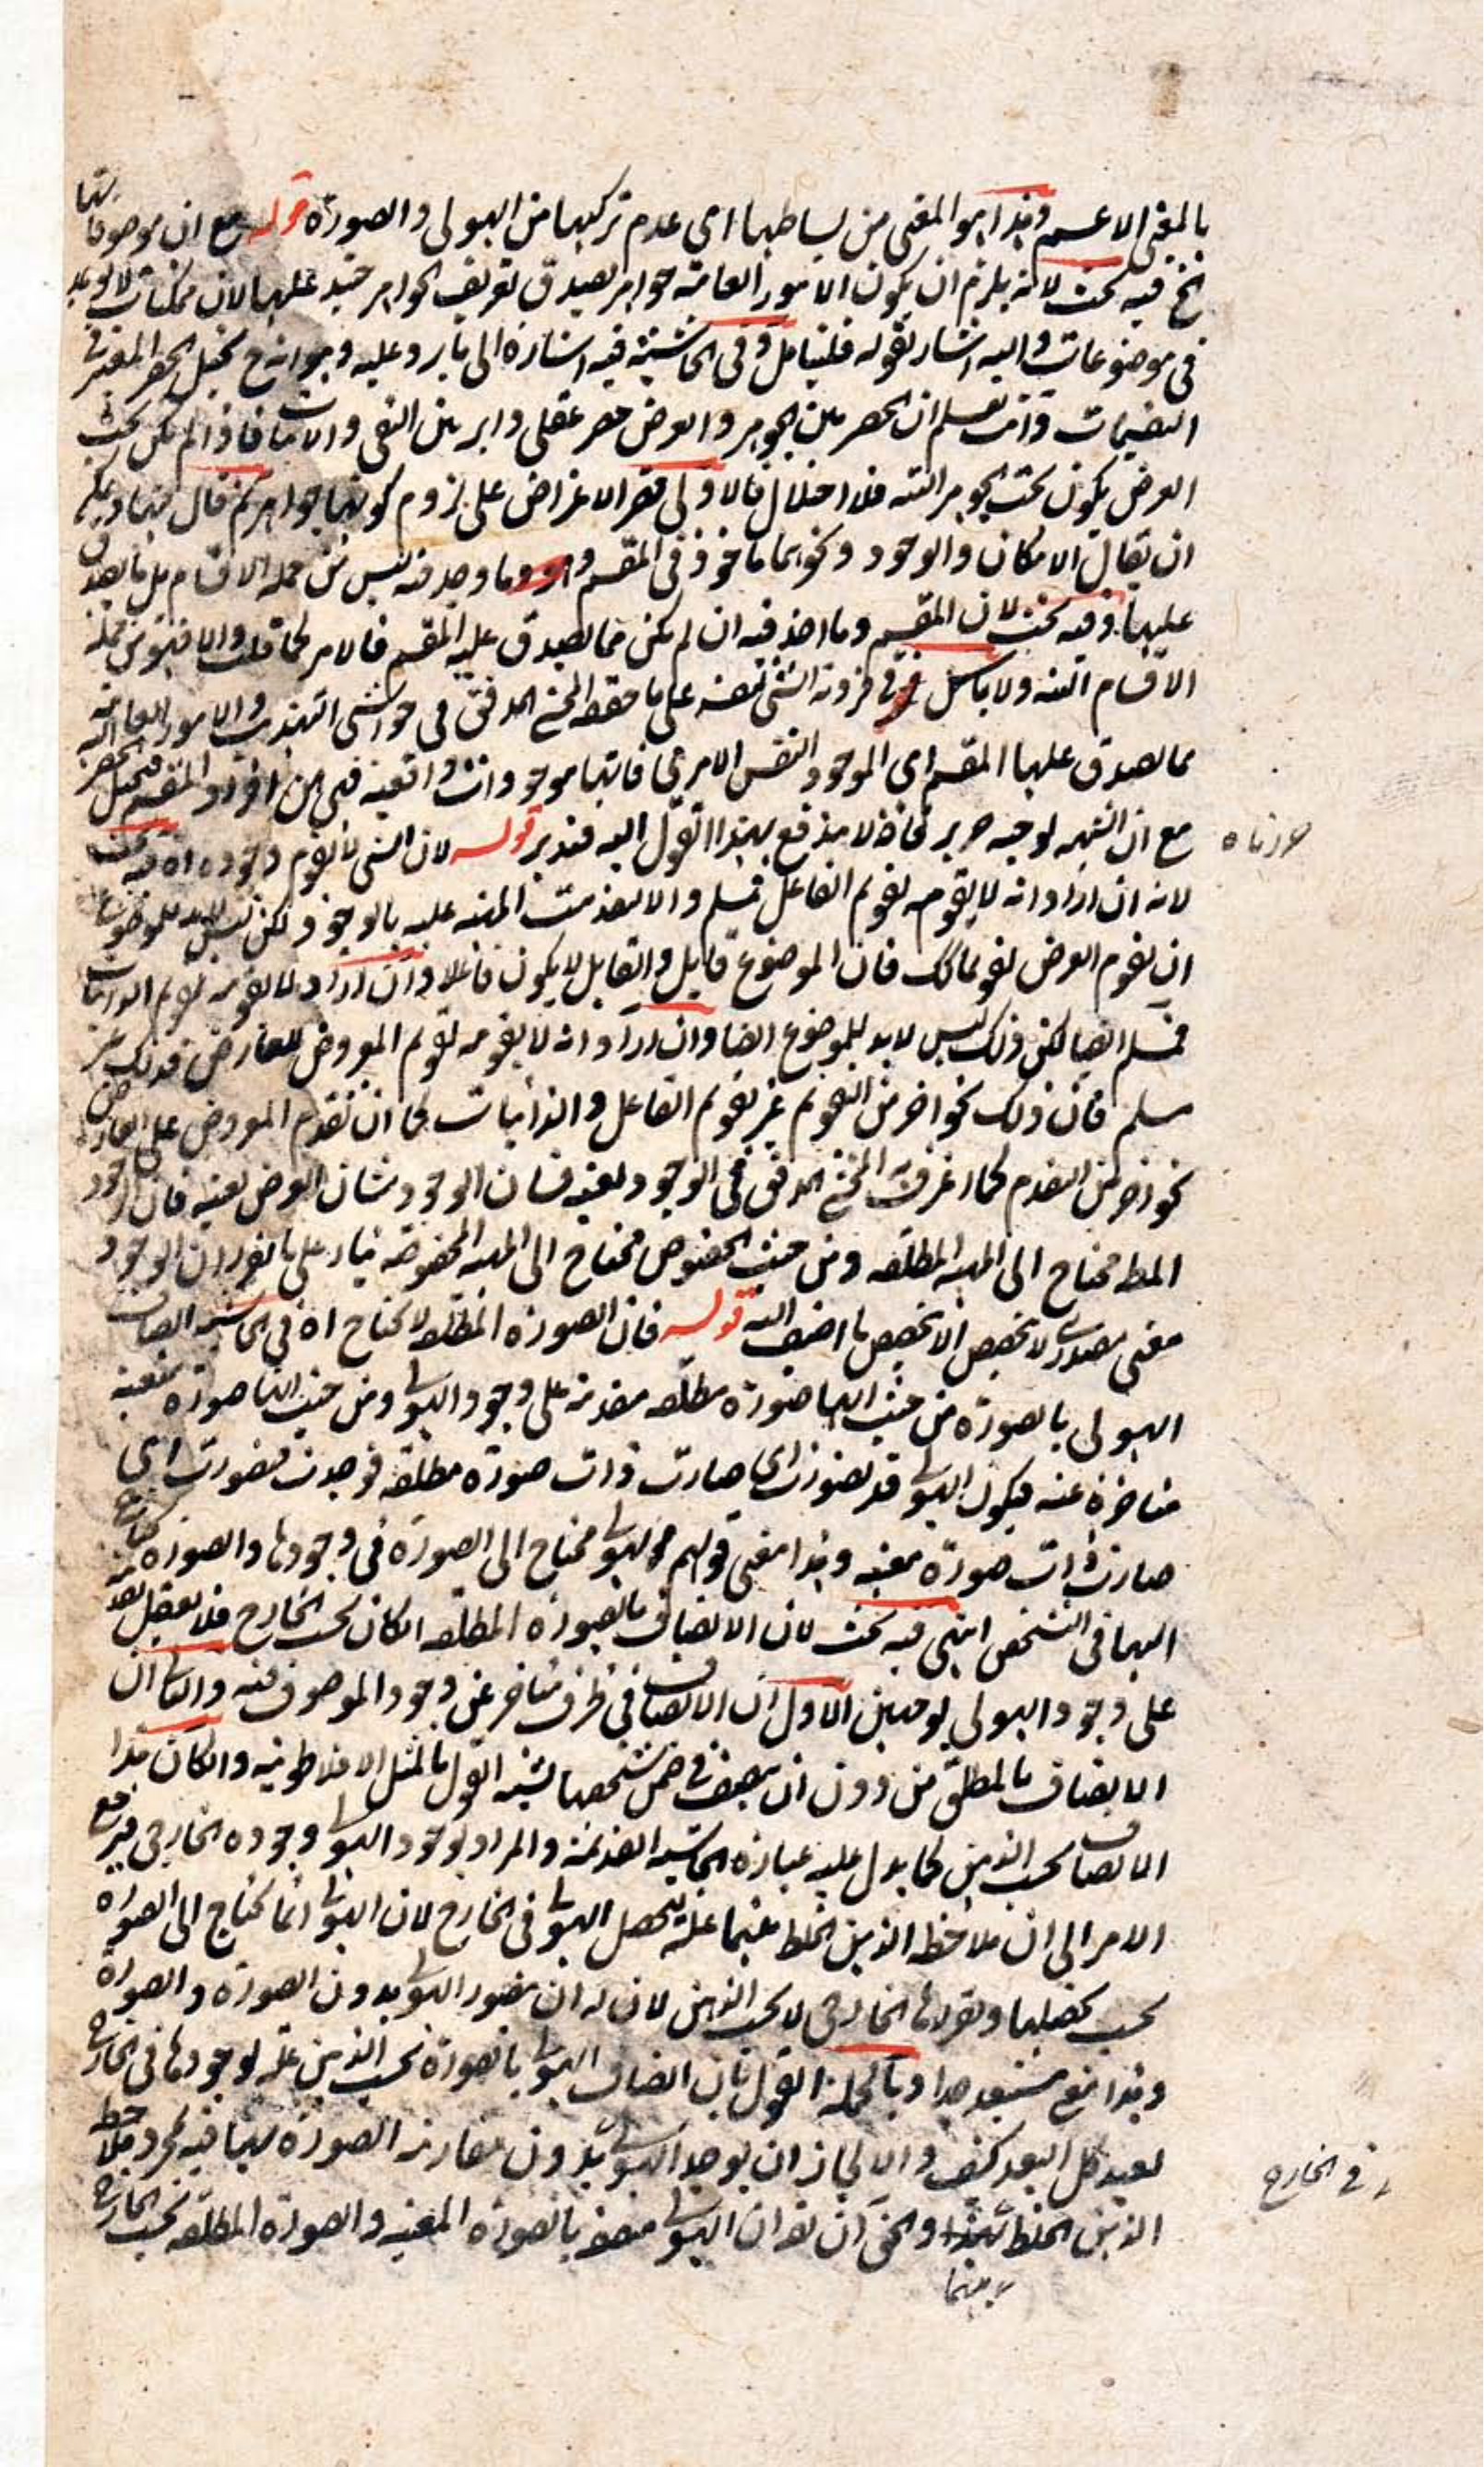 بالمعنى الاعم وهذا هو المعنى من بساطتها اى عدم تركبها من الهيولى والصورة قوله مع ان موصوفاتها
الخ فيه بحث لانه يلزم ان يكون الامور العامة جواهر يصدق تعريف الجواهر عليها لان ممكنات
فى موضوعات واليه اشار بقوله فليتامل وفى الحاشية فيه اشارة الى ما يرد عليه وجوابه ح يختل الحصر المعتبر فى
التقسيمات وانت تعلم ان الحصر بين الجوهر والعرض حصر عقلى داير بين النفى والاثبات فاذا لم يكن تحت
العرض يكون تحت الجوهر البتة فلا اختلال فالاولى قصر الاعتراض على لزوم كونها جواهر ثم قال
ان يقال الامكان والوجود ونحوهما ماخوذ فى المقسم وما وجد فيه ليس من جملة الاقسام بل ما يصدق
عليها وفيه بحث لان المقسم وما اخذ فيه ان لم يكن مما يصدق عليه المقسم فالامر كما قلت والا فهو من جملة
الاقسام البتة ولا باس فى فردية الشئ لنفسه على ما حققه المحشى المدقق فى حواشى التهذيب والامور العامة
مما يصدق عليها المقسم اى الموجود النفس الامرى فانها موجودات واقعية فهى من افراد المقسم فيختل الحصر
مع ان الشبهة لوجه لا يندفع بهذا القول اليه فتدبر قوله لان الشئ لا يقوم وجوده اه فيه بحث
لانه ان اراد انه لا يقومه تقويم الفاعل فمسلم والا لتقدمت المهية عليه بالوجود لكن ليس لابد للموضوع
ان يقوم العرض تقويما كك فان الموضوع قابل والقابل لا يكون فاعلا وان اراد لا يقومه تقويم الذاتيات
فمسلم ايضا لكن ذلك ليس لابد للموضوع ايضا وان اراد انه لا يقومه تقويم المعروض للعارض فذلك غير
مسلم فان ذلك نحو اخر من التقويم غير تقويم الفاعل والذاتيات كما ان تقدم المعروض على العارض
نحو اخر من التقدم كما اعترف به المحشى المدقق ففى الوجود بعينه فشان الوجود شان العرض بعينه فان الوجود
المط محتاج الى المهية المطلقة ومن حيث الخصوص محتاج الى المهية المخصوصة بناء على ما تقرر ان الوجود
معنى مصدرى لا تخصص الا بتخصص ما اضيف اليه قوله فان الصورة المطلقة لا تحتاج اه فى الحاشية اتصاف
الهيولى بالصورة من حيث انها صورة مطلقة مقدمة على وجود الهيولى ومن حيث انها صورة معينة
متاخرة عنه فيكون الهيولى قد تصورت اى صارت ذات صورة مطلقة فوجدت فتصورت اى
صارت ذات صورة معينة وهذا معنى قولهم الهيولى محتاج الى الصورة فى وجودها والصورة محتاج
اليها فى التشخص انتهى فيه بحث لان الاتصاف بالصورة المطلقة ان كان بحسب الخارج فلا يعقل تقدمه
على وجود الهيولى لوجهين الاول ان الاتصاف فى ظرف متاخر عن وجود الموصوف فيه والثانى ان
الاتصاف بالمطلق من دون ان يتصف فى ضمن شخصها يشبه القول بالمثل الافلاطونية وان كان هذا
الاتصاف بحسب الذهن كما يدل عليه عبارة الحاشية القديمة والمراد بوجود الهيولى وجوده الخارجى فيرجع
الامر الى ان ملاحظة الذهن الخلط بينهما علة لتحصل الهيولى فى الخارج لان الهيولى انما تحتاج الى الصورة
بحسب تحصلها وتقررها الخارجى لا بحسب الذهن لان له ان يتصور الهيولى بدون الصورة والصورة
وهذا مع مستبعد جدا وبالجملة القول بان اتصاف الهيولى بالصورة بحسب الذهن علة لوجودها فى الخارج
بعيد كل البعد كيف والا لجاز ان يوجد الهيولى بدون مقارنة الصورة بها فيه بمجرد ملاحظة
الذهن الخلط والحق ان يقال ان الهيولى متصف بالصورة المعينة والصورة المطلقة بحسب الخارج
بينهما
فى الخارج